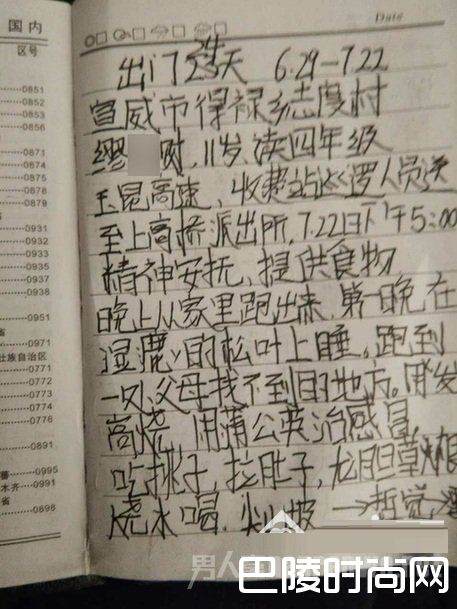 国内
区号
0851
0852
0853
0856
0871
0874
0875
0876
0878
0879
0931
0932
0933
0935
0936
0937
0938
0951
省
壮族自治区
0771
0772
0773
0774
0776
0891
0995
木齐 0991
省
0898
Date
出门23天 6.29-7.22
宣威市得禄乡志度村
缪 树，11岁，读四年级
玉昆高速，收费站巡逻人员送
至上高桥派出所，7.22日下午5:00
精神安抚，提供食物
晚上从家里跑出来，第一晚在
湿漉的松叶上睡。跑到
一处父母找不到的地方。用发
高烧 用蒲公英治感冒
吃挑子，拉肚子，龙胆草根
烧水喝.
巴陵时尚网